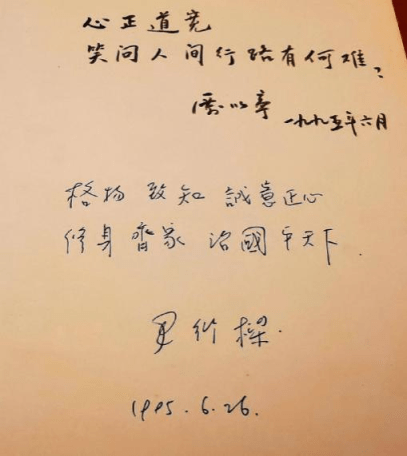 心正道宽
笑问人间行路有何难?
厲以寧 一九九五年六月
格物致知 誠意正心
修身齊家 治國平天下.
1995.6.26.